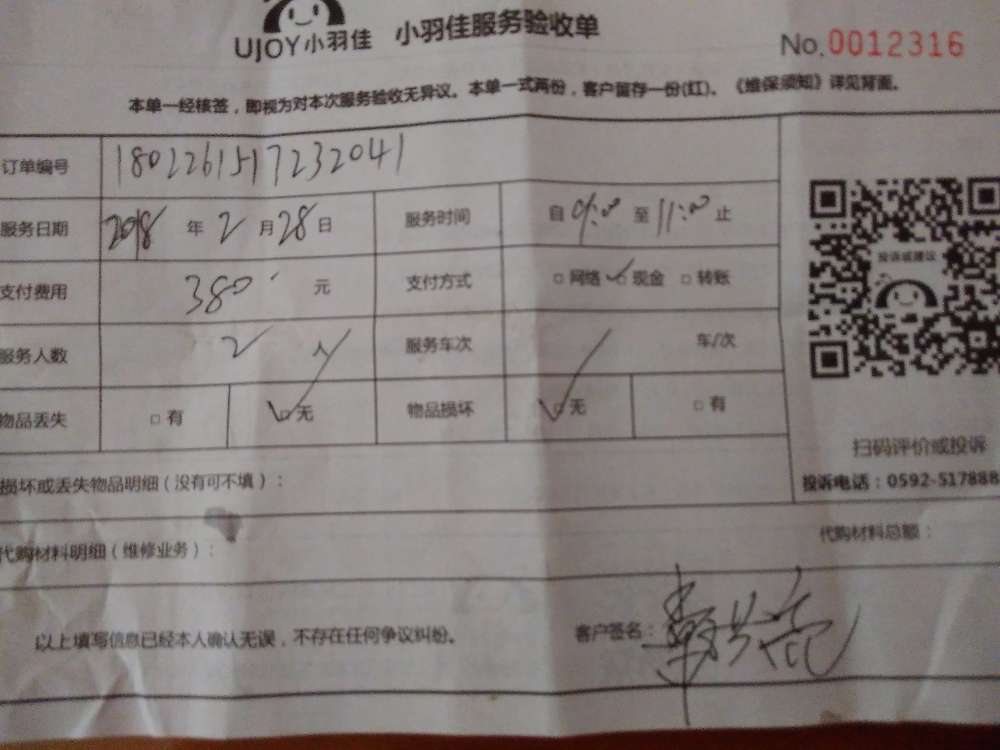 UJOY小羽佳 小羽佳服务验收单
No.0012316
本单一经核签，即视为对本次服务验收无异议。本单一式两份，客户留存一份(红)。《维保须知》详见背面。
订单编号 1802261517232041
服务日期 2018 年 2 月 28 日 服务时间 自 9:00 至 11:00 止
投诉或建议
支付费用 380 元 支付方式 □ 网络 ✓□ 现金 □ 转账
服务人数 2 人 服务车次 车/次
物品丢失 □ 有 ✓□ 无 物品损坏 ✓□ 无 □ 有
扫码评价或投诉
损坏或丢失物品明细（没有可不填）：
投诉电话：0592-517888
代购材料明细（维修业务）： 代购材料总额：
以上填写信息已经本人确认无误，不存在任何争议纠纷。 客户签名：